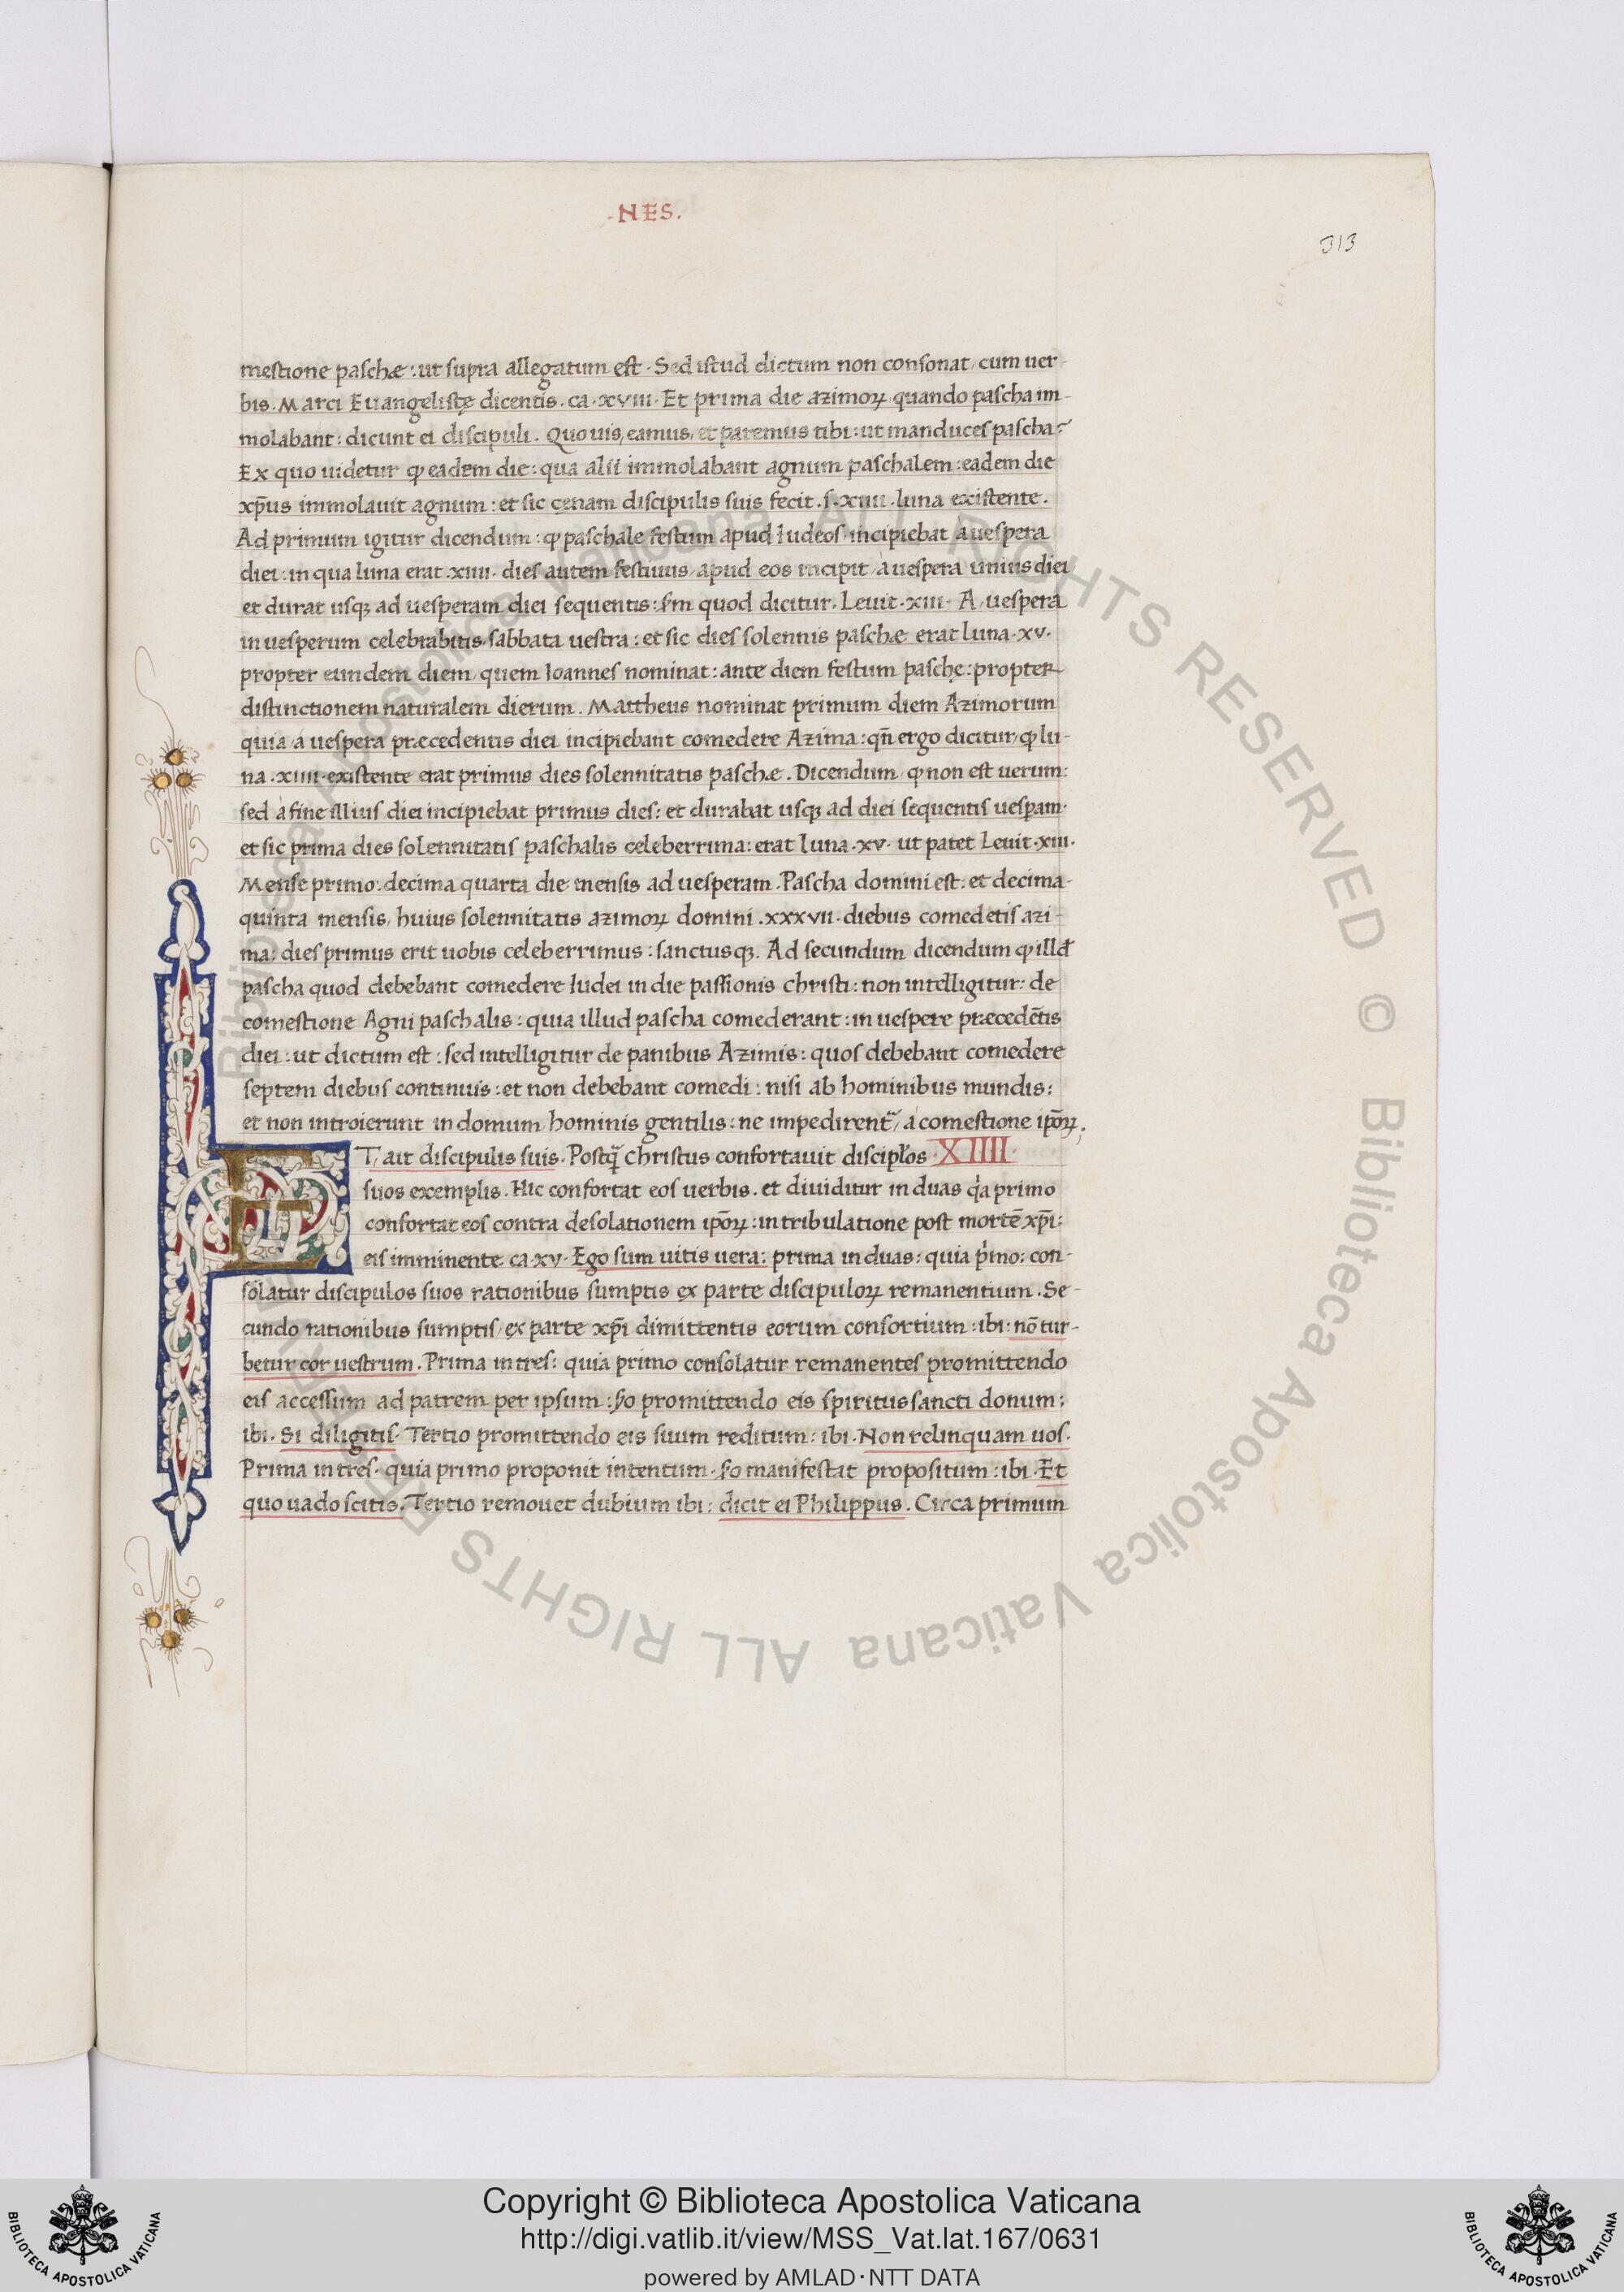 -NES.
313
mestione paschæ: ut supra allegatum est. Sed istud dictum non consonat, cum uer-
bis. Marci Euangelistę dicentis. ca. xviii. Et prima die azimoꝝ quando pascha im-
molabant: dicunt ei discipuli. Quo uis, eamus, et paremus tibi: ut manduces pascha?
Ex quo uidetur ꝙ eadem die: qua alii immolabant agnum paschalem: eadem die
xp̄us immolauit agnum: et sic cęnam discipulis suis fecit. s. xiiii. luna existente.
Ad primum igitur dicendum: ꝙ paschale festum apud Iudeos incipiebat a uespera
diei: in qua luna erat xiiii. dies autem festiuus, apud eos incipit, a uespera unius diei
et durat usqꝫ ad uesperam diei sequentis: sm̄ quod dicitur. Leuit. xiii. A uespera
in uesperum celebrabitis, sabbata uestra: et sic dies solennis paschæ erat luna. xv.
propter eundem diem, quem Ioannes nominat: ante diem festum paschę: propter
distinctionem naturalem dierum. Mattheus nominat primum diem Azimorum
quia, a uespera præcedentis diei incipiebant comedere Azima: qn̄ ergo dicitur, ꝙ lu-
na. xiiii. existente erat primus dies solennitatis paschæ. Dicendum ꝙ non est uerum:
sed a fine illius diei incipiebat primus dies: et durabat usqꝫ ad diei sequentis uesꝑam.
et sic prima dies solennitatis paschalis celeberrima: erat luna. xv. ut patet Leuit. xiii.
Mense primo: decima quarta die mensis ad uesperam. Pascha domini est: et decima-
quinta mensis, huius solennitatis azimoꝝ domini. xxxvii. diebus comedetis azi-
ma: dies primus erit uobis celeberrimus: sanctusqꝫ. Ad secundum dicendum ꝙ illđ
pascha quod debebant comedere Iudei in die passionis christi: non intelligitur: de
comestione Agni paschalis: quia illud pascha comederant: in uespere præcedētis
diei: ut dictum est: sed intelligitur de panibus Azimis: quos debebant comedere
septem diebus continuis: et non debebant comedi: nisi ab hominibus mundis:
et non introierunt in domum, hominis gentilis: ne impedirent᷑, a comestione ip̄oꝝ.
ET, ait discipulis suis. Postq̄ Christus confortauit discipłos XIIII.
suos exemplis. Hic confortat eos uerbis. et diuiditur in duas qͥa primo
confortat eos contra desolationem ip̄oꝝ: in tribulatione post mortē xp̄i:
eis imminente ca. xv. Ego sum uitis uera: prima in duas: quia pͥmo: con-
solatur discipulos suos rationibus sumptis ex parte discipuloꝝ remanentium. Se-
cundo rationibus sumptis, ex parte xp̄i dimittentis eorum consortium: ibi: nō tur-
betur cor uestrum. Prima in tres: quia primo consolatur remanentes promittendo
eis accessum ad patrem per ipsum: s̸o promittendo eis spiritus sancti donum:
ibi. Si diligitis. Tertio promittendo eis suum reditum: ibi. Non relinquam uos.
Prima in tres. quia primo proponit intentum. s̸o manifestat propositum: ibi. Et
quo uado scitis. Tertio remouet dubium ibi: dicit ei Philippus. Circa primum
Copyright © Biblioteca Apostolica Vaticana
http://digi.vatlib.it/view/MSS_Vat.lat.167/0631
powered by AMLAD·NTT DATA
BIBLIOTECA APOSTOLICA VATICANA
BIBLIOTECA APOSTOLICA VATICANA
Biblioteca Apostolica Vaticana ALL RIGHTS RESERVED © Biblioteca Apostolica Vaticana ALL RIGHTS RESERVED ©